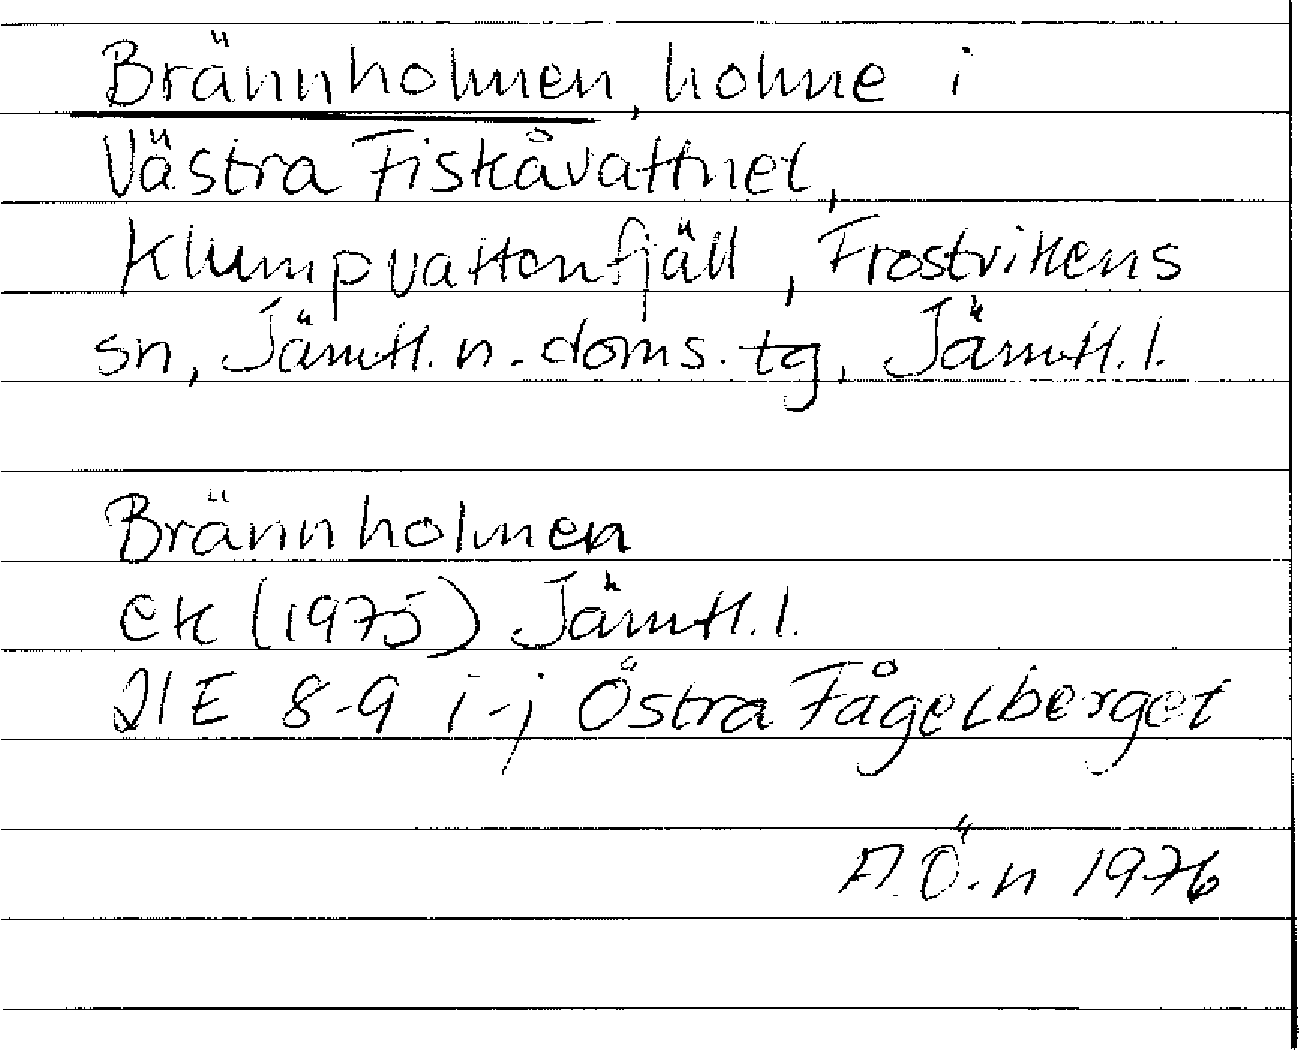 Brännholmen, holme i
Västra Fiskåvattnet,
Klumpvattenfjäll, Frostvikens
sn, Jämtl. n. doms. tg, Jämtl. l.
Brännholmen
ek (1975) Jämtl. l.
21E 8-9 i-j Östra Fågelberget
A.Ö-n 1976